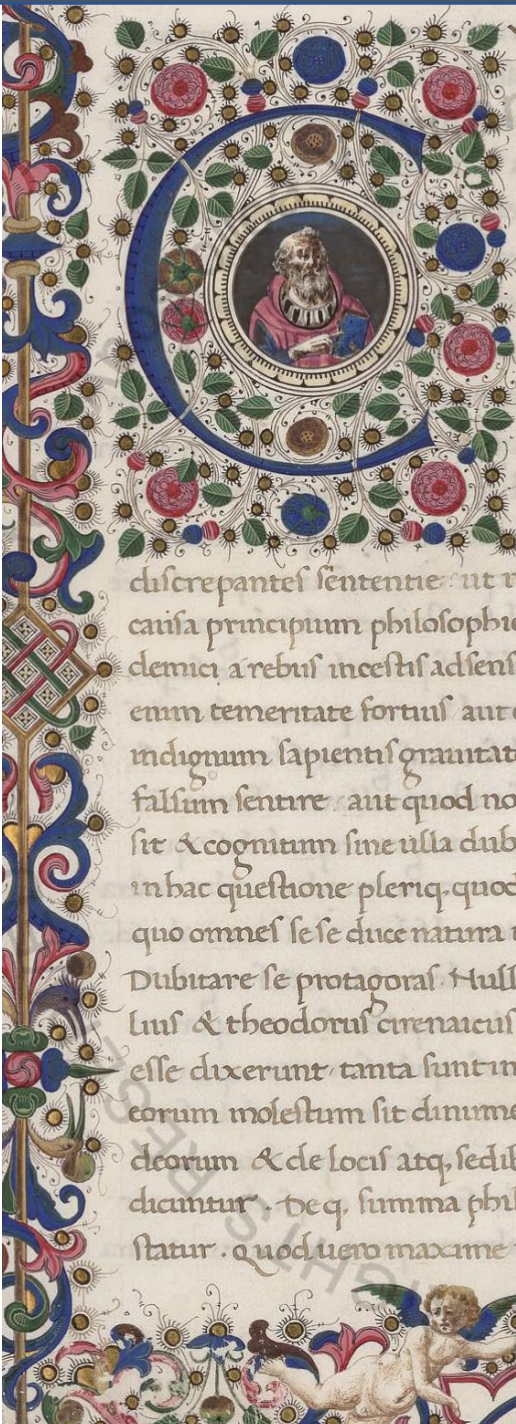 C
discrepantes sententie ut
causa principium philosophi
demici a rebus incestis adsens
enim temeritate fortius aut
indignum sapientis grauitat
falsum sentire aut quod no
sit & cognitum sine ulla dub
in hac questione pleriq, quod
quo omnes se se duce natura
Dubitare se protagoras Null
lius & theodorus cirenaicus
esse dixerunt tanta sunt in
eorum molestum sit dinume
deorum & de locis atq, sedib
dicuntur. De q, summa phil
statur. quod uero maxime